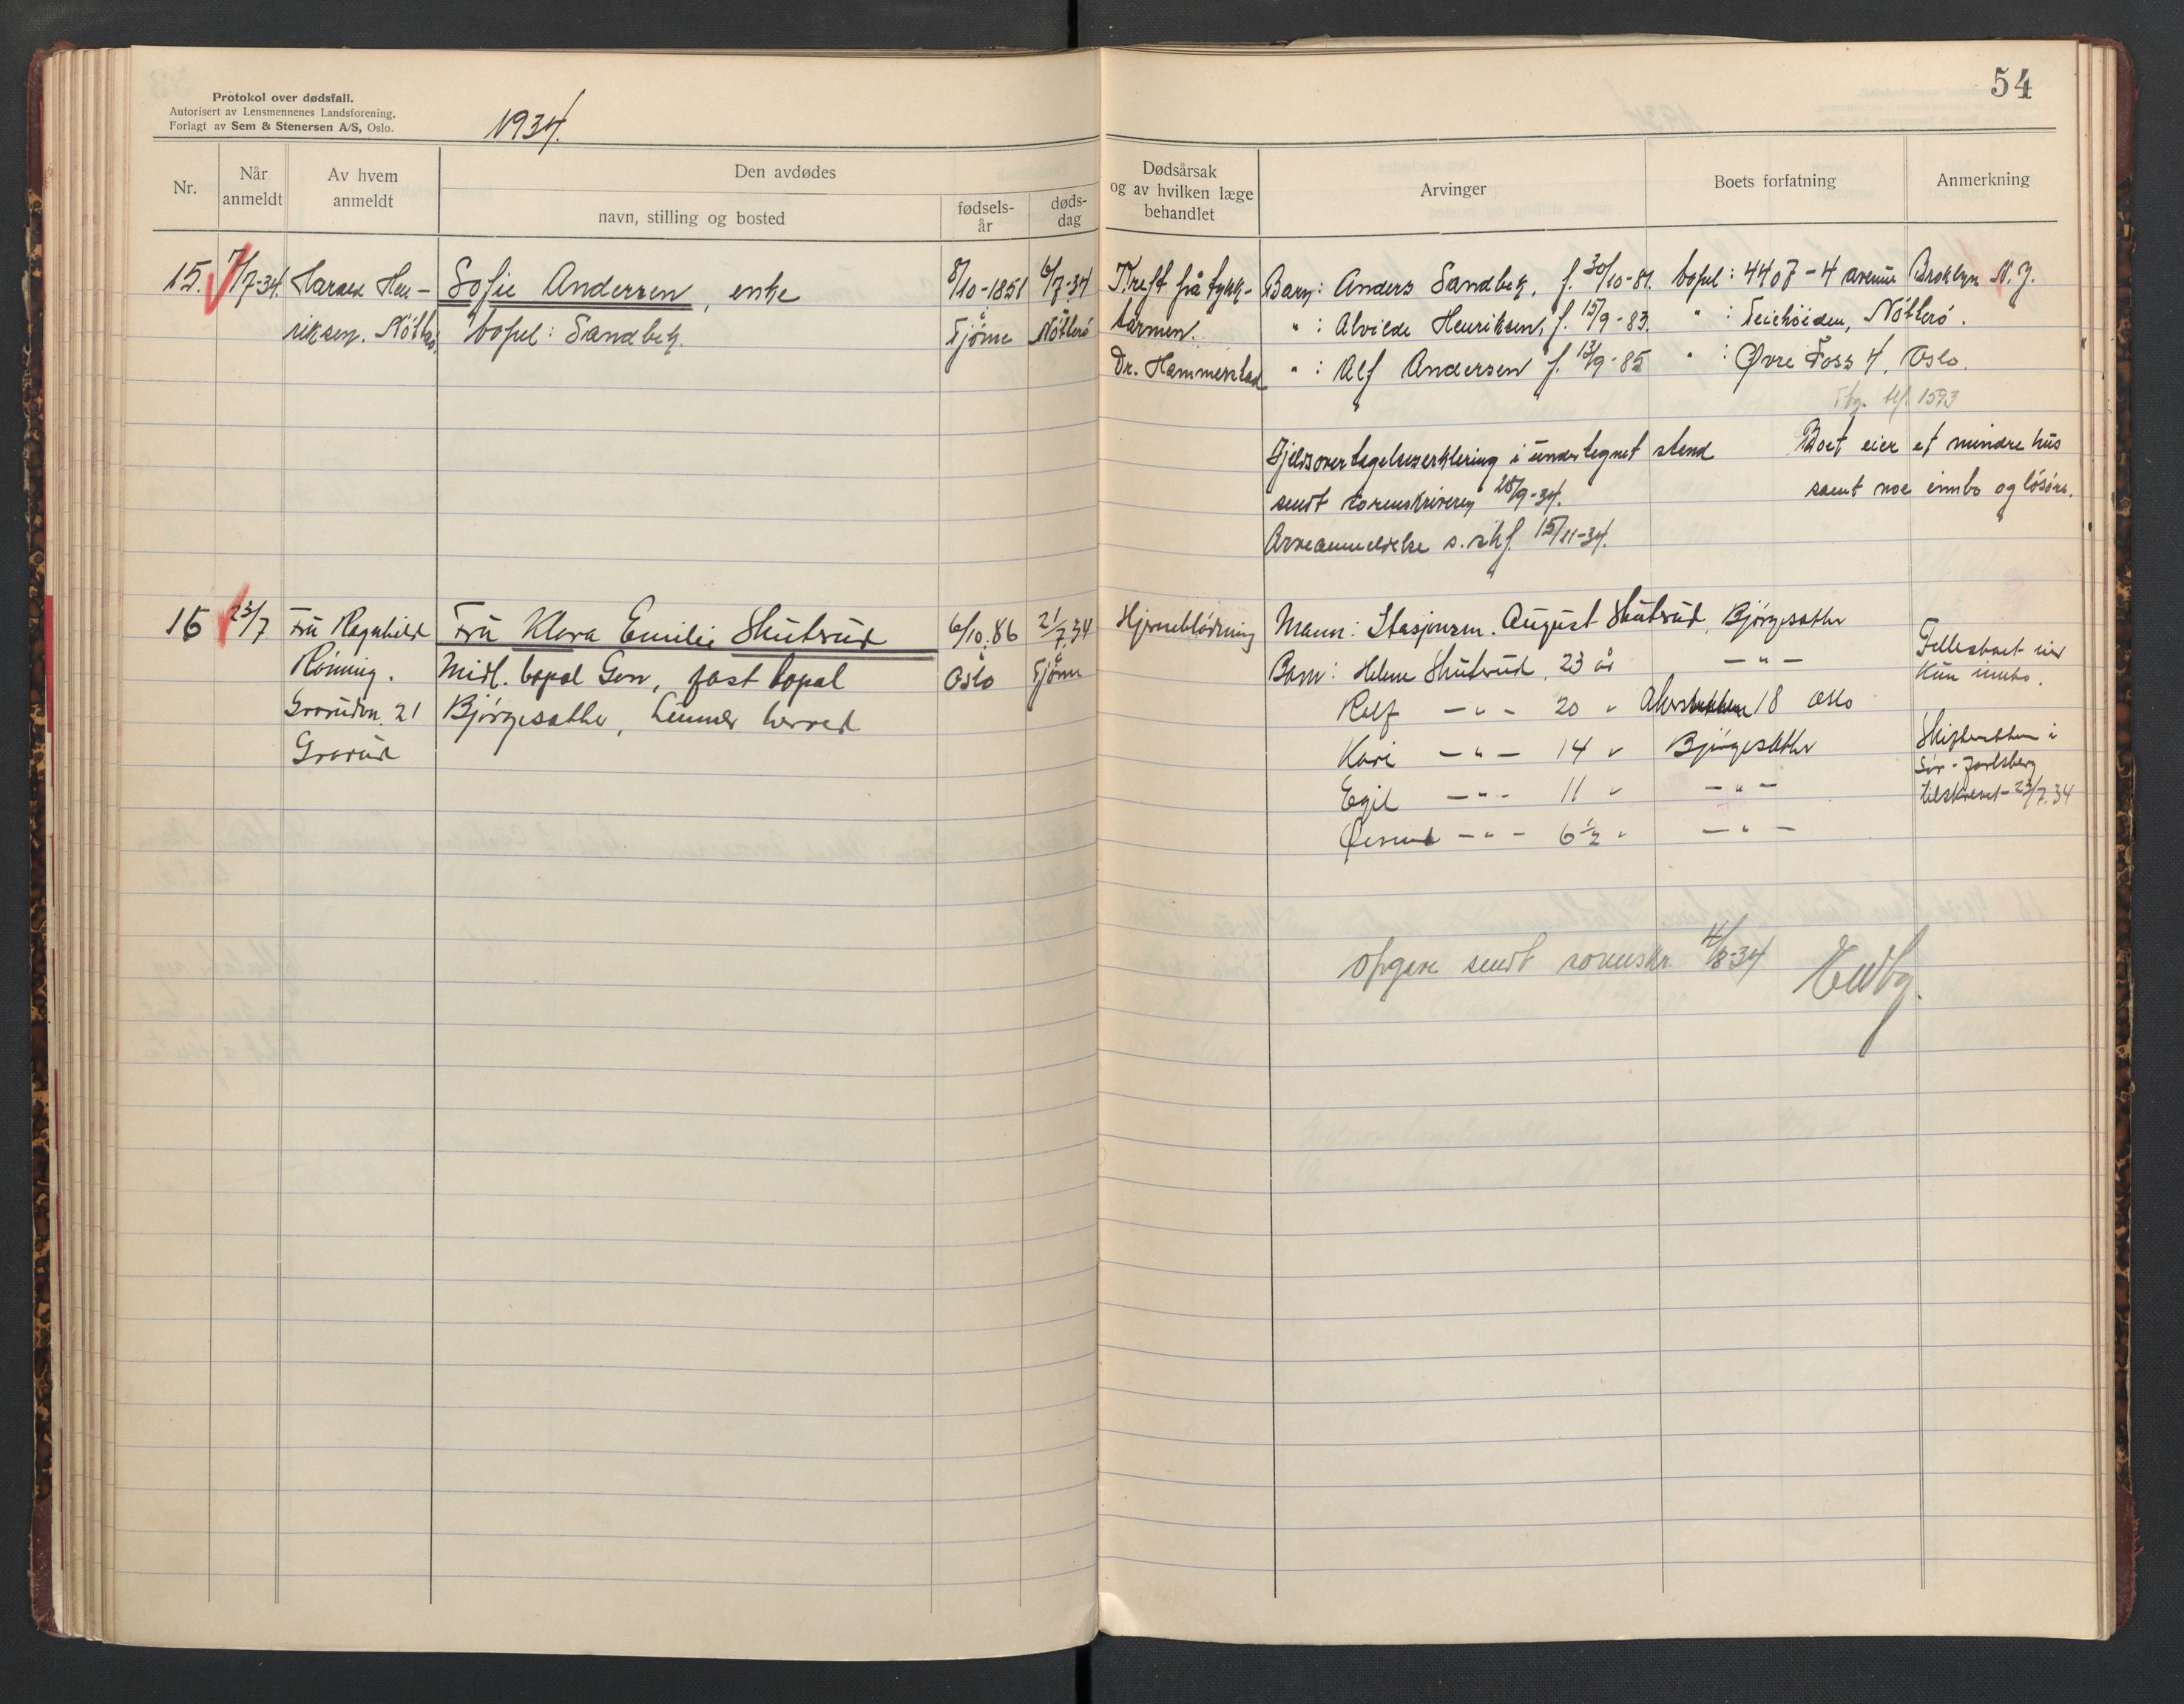 Protokol over dødsfall.
Autorisert av Lensmennenes Landsforening.
Forlagt av Sem & Stenersen A/S, Oslo.
1934.
54
Nr.
Når anmeldt
Av hvem anmeldt
Den avdødes
navn, stilling og bosted
fødsels-år
døds-dag
Dødsårsak og av hvilken læge behandlet
Arvinger
Boets forfatning
Anmerkning
15. 7/7-34. Harald Hen- Sofie Andersen, enke 8/10-1851 6/7-34 Kreft frå tykk- Barn: Anders Sandbek, f. 30/10-81. bopel: 4407-4 avenue Broklyn N.J.
riksen. Nötterö, bopel: Sandbek. Tjöme Nötterö tarmen. " : Alvilde Henriksen, f. 15/9-83. " : Teiehöiden, Nötterö.
Dr. Hammerstad " : Alf Andersen f. 13/9-85 " : Øvre Foss 4, Oslo.
Tbg. tlf. 1593
Gjeldsovertagelseserklering i undertegnet stand Boet eier et mindre hus
sendt sorenskriveren 28/9-34. samt noe innbo og lösöre.
Arveanmeldelse s. skf. 15/11-34.
16 23/7 Fru Ragnhild Fru Klara Emilie Skutrud 6/10.86 21/7.34 Hjerneblödning Mann: Stasjonsm. August Skutrud, Bjørgesæther
Rönning. Midl. bopal Gon, fast bopal Oslo Tjöme Barn: Helene Skutrud, 23 år — " — Fellesboet eier
Grorudvn. 21 Bjørgesæther, Lunner herred Rolf — " — 20 " 18 Oslo kun innbo.
Grorud Kari — " — 14 " Bjørgesæther Skifteretten i
Egil — " — 11 " — " — Sør-Jarlsberg
— " — 6 1/2 " — " — tilskrevet 23/7.34
Opgave sendt sorenskr. 4/8-34